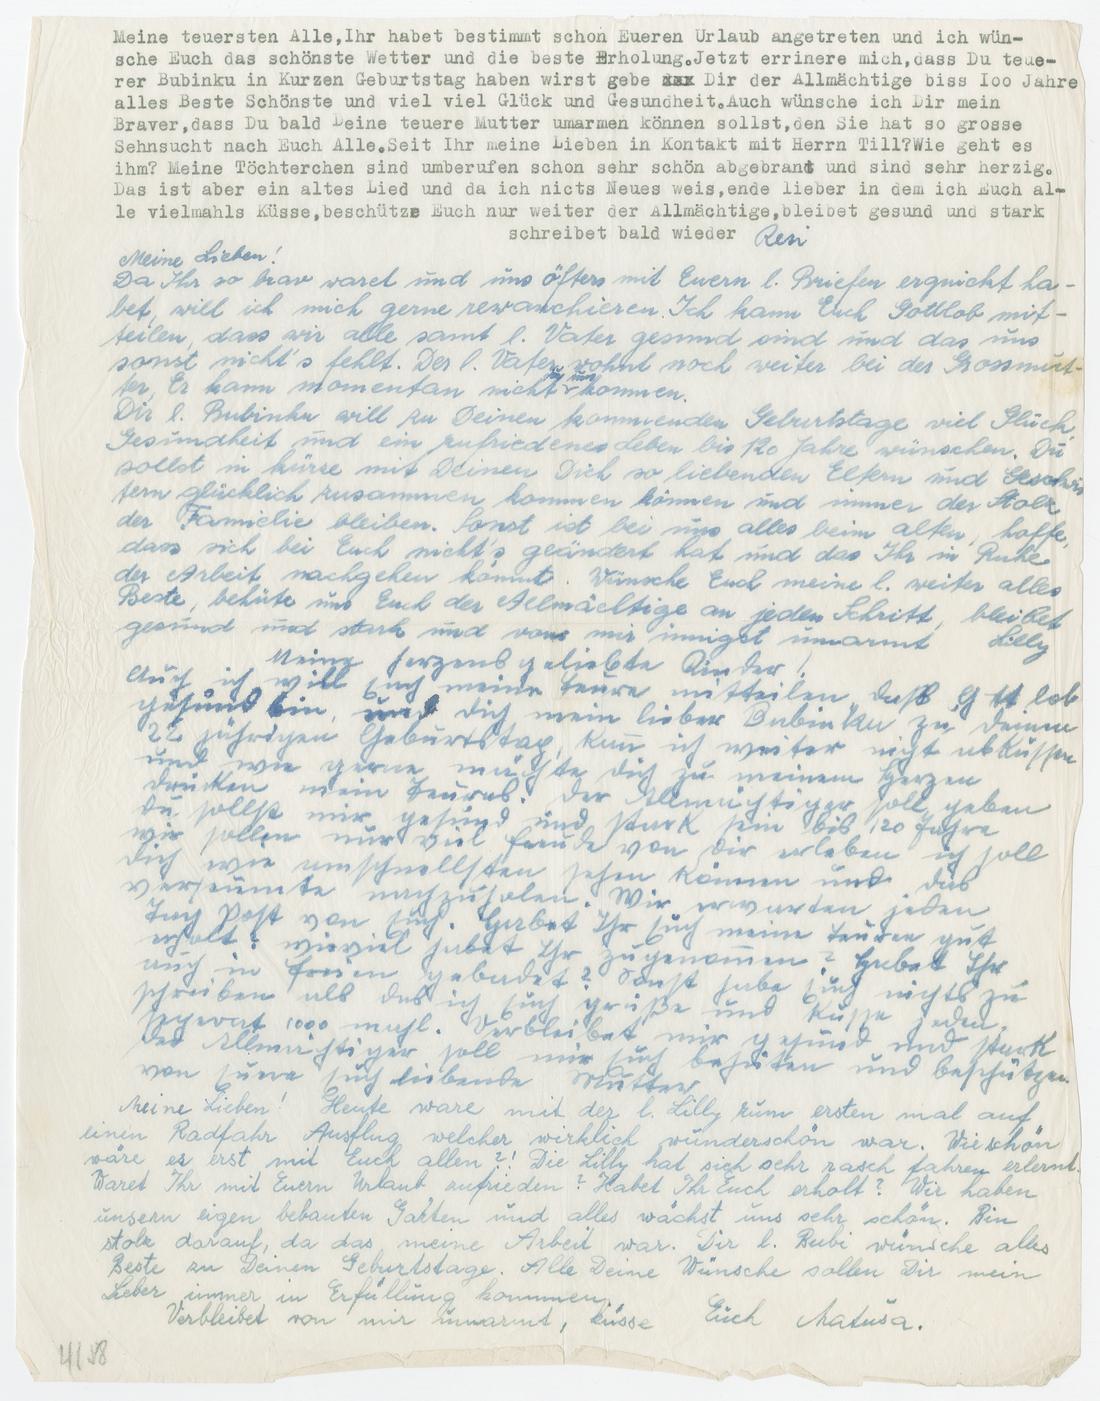 Meine teuersten Alle,Ihr habet bestimmt schon Eueren Urlaub angetreten und ich wün-
sche Euch das schönste Wetter und die beste Erholung.Jetzt errinere mich,dass Du teue-
rer Bubinku in Kurzen Geburtstag haben wirst gebe xxx Dir der Allmächtige biss Ioo Jahre
alles Beste Schönste und viel viel Glück und Gesundheit.Auch wünsche ich Dir mein
Braver,dass Du bald Deine teuere Mutter umarmen können sollst,den Sie hat so grosse
Sehnsucht nach Euch Alle.Seit Ihr meine Lieben in Kontakt mit Herrn Till?Wie geht es
ihm? Meine Töchterchen sind umberufen schon sehr schön abgebrant und sind sehr herzig.
Das ist aber ein altes Lied und da ich nicts Neues weis,ende lieber in dem ich Euch al-
le vielmahls Küsse,beschütze Euch nur weiter der Allmächtige,bleibet gesund und stark
schreibet bald wieder Resi
Meine Lieben!
Da Ihr so brav waret und uns öfters mit Euern l. Briefen erquickt ha-
bet, will ich mich gerne rewanchieren. Ich kann Euch Gottlob mit-
teilen, dass wir alle samt l. Vater gesund sind und das uns
sonst nicht's fehlt. Der l. Vater wohnt noch weiter bei der Grossmut-
ter, Er kann momentan nicht zu uns kommen.
Dir l. Bubinku will zu Deinen kommenden Geburtstage viel Glück,
Gesundheit und ein zufriedenes Leben bis 120 Jahre wünschen. Du
sollst in kürze mit Deinen Dich so liebenden Eltern und Geschwis
tern glücklich zusammen kommen können und immer der Stolz
der Familie bleiben. Sonst ist bei uns alles beim alten, hoffe,
dass sich bei Euch nicht's geändert hat und das Ihr in Ruhe
der Arbeit nachgehen könnt. Wünsche Euch meine l. weiter alles
Beste, behüte uns Euch der Allmächtige an jeden Schritt, bleibet
gesund und stark und von mir innigst umarmt Lilly
Meine herzensgeliebte Kinder!
Auch ich will Euch meine teure mitteilen daß Gottlob
gesund bin, und dich mein lieber Bubinku zu deinem
22 jährigen Geburtstag, kann ich weiter nicht abküssen
und wie gerne möchte dich zu meinem Herzen
drücken mein teures. Der Allmächtiger soll geben
du sollst mir gesund und stark sein bis 120 Jahre
wir sollen nur viel freude von dir erleben ich soll
dich wie amschnellsten sehen können und das
verseumte nachzuholen. Wir erwarten jeden
Tag Post von Euch. Habet Ihr Euch meine teuren gut
erholt? wieviel habet Ihr zugenommen? Habet Ihr
auch in freien gebadet? Sonst habe Euch nichts zu
schreiben als das ich Euch grüße und Küsse jeden
seperat 1000 mahl. Verbleibet mir gesund und stark
der Allmächtiger soll mir Euch behüten und beschützen.
von Euere Euch liebende Mutter
Meine Lieben! Heute ware mit der l. Lilly zum ersten mal auf
einen Radfahr Ausflug welcher wirklich wunderschön war. Wie schön
wäre es erst mit Euch allen?! Die Lilly hat sich sehr rasch fahren erlernt.
Waret Ihr mit Euern Urlaub zufrieden? Habet Ihr Euch erholt? Wir haben
unsern eigen bebauten Garten und alles wächst uns sehr schön. Bin
stolz darauf, da das meine Arbeit war. Dir l. Bubi wünsche alles
Beste zu Deinen Geburtstage. Alle Deine Wünsche sollen Dir mein
Lieber immer in Erfüllung kommen.
Verbleibet von mir umarmt, küsse Euch Matusa.
4/38